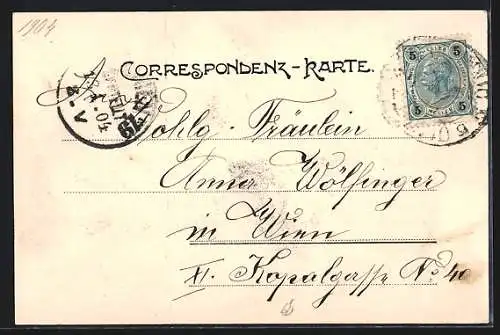 1904
CORRESPONDENZ-KARTE.
5 5
5 5
04
4-V
Wohlg. Fräulein
Anna Wölfinger
in Wien
XI. Kopalgasse No 40